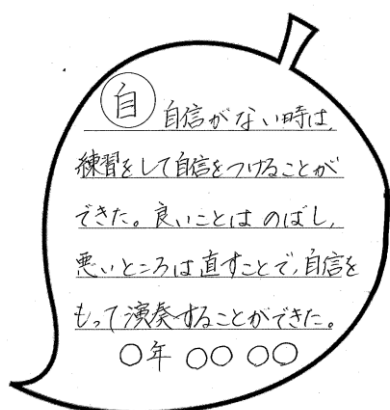 自 自信がない時は、
練習をして自信をつけることが
できた。良いことはのばし、
悪いところは直すことで、自信を
もって演奏することができた。
○年 ○○ ○○